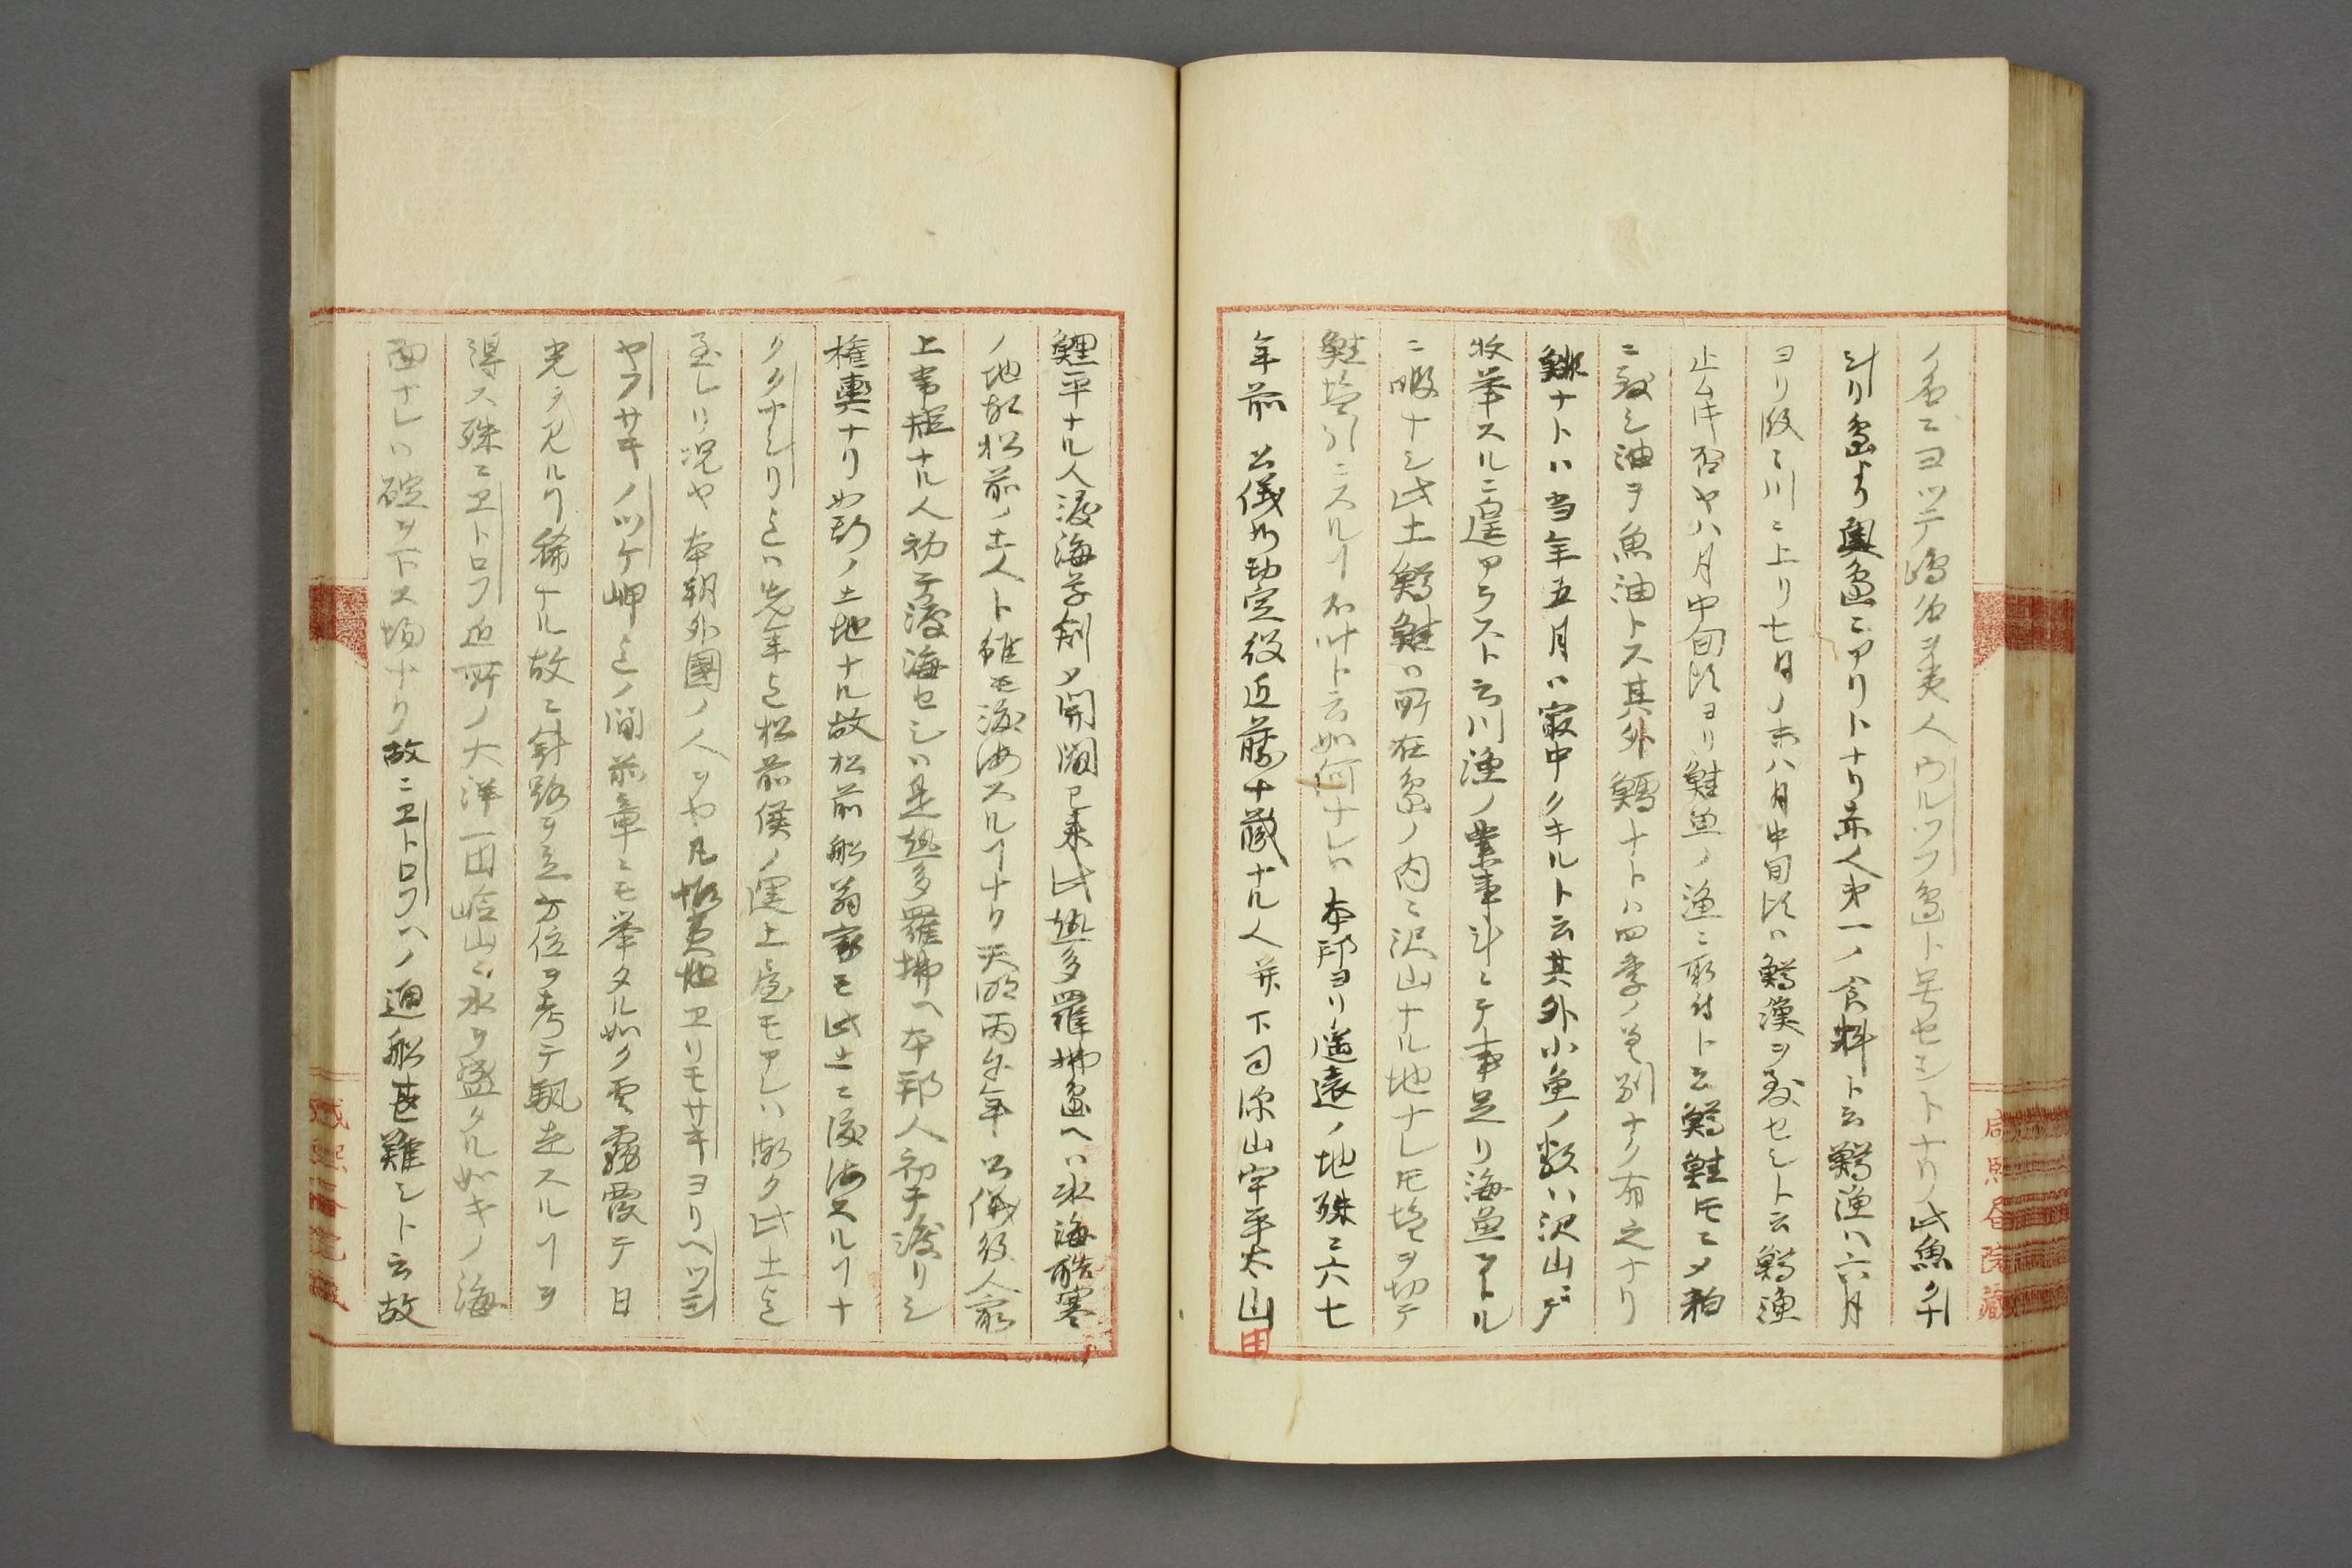 ノ名ニヨツテ嶋名夷人ウルツフ島ト号セシトナリ此魚タ
リ島より奥島ニアリトナリ赤人第一ノ食料ト云鱒漁ハ六月
ヨリ段々川ニ上リ七月ノ末八月中旬頃ハ鱒漁ヲ致セシト云鱒漁
止ム件否や八月中旬頃ヨリ鮭魚ノ漁ニ取付ト云鱒鮭トモニ〆粕
ニ致シ油ヲ魚油トス其外鱈ナトハ四季ノ差別ナク有之ナリ
ナトハ当年五月ハ最中クキルト云其外小魚ノ数ハ沢山デ
枚挙スルニ遑アラスト云川漁ノ業事斗ニテ事足リ海魚マトル
ニ暇ナシ此土鱒鮭ハ所在島ノ内ニ沢山ナル地ナレトモ塩ヲ切テ
鮭塩引ニスルヿ不叶ト云如何ナレハ本邦ヨリ遥遠ノ地殊ニ六七
年前公儀御勘定役近藤十蔵ナル人并下司深山宇平太山田
鯉平ナル人渡海草創〆開闢已来此恵多羅拂島ヘハ氷海酷寒
ノ地故松前ノ士人ト雖モ渡海スルヿナク天明丙午年公儀役人最
上常矩ナル人初テ渡海セシハ是恵多羅拂ヘ本邦人初テ渡リシ
権輿ナリ如斯ノ土地ナル故松前船翁家モ此土ニ渡海スルヿナ
リクナシリ迄ハ先年迄松前侯ノ運上屋モアレハ漸ク此土迄
至レリ況や本朝外國ノ人ヲや凡蝦夷地ヱリモサキヨリヘツシ
ヤフサキノツケ岬迄ノ間前章ニモ挙タル如ク雲霧霞テ日
光ヲ見ルヿ稀ナル故ニ針路ヲ立方位ヲ考テ颿走スルヿヲ
得ス殊ニヱトロフ近所ノ大洋一田嶮山ニ水ヲ盛タル如キノ海
面ナレハ碇ヲ下ス場ナリ故ニヱトロフヘノ通船甚難シト云故